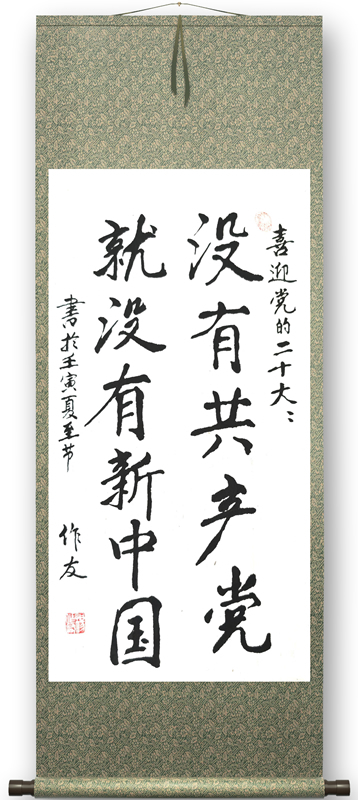 喜迎党的二十大〻
没有共产党
就没有新中国
書於壬寅夏至节
作友